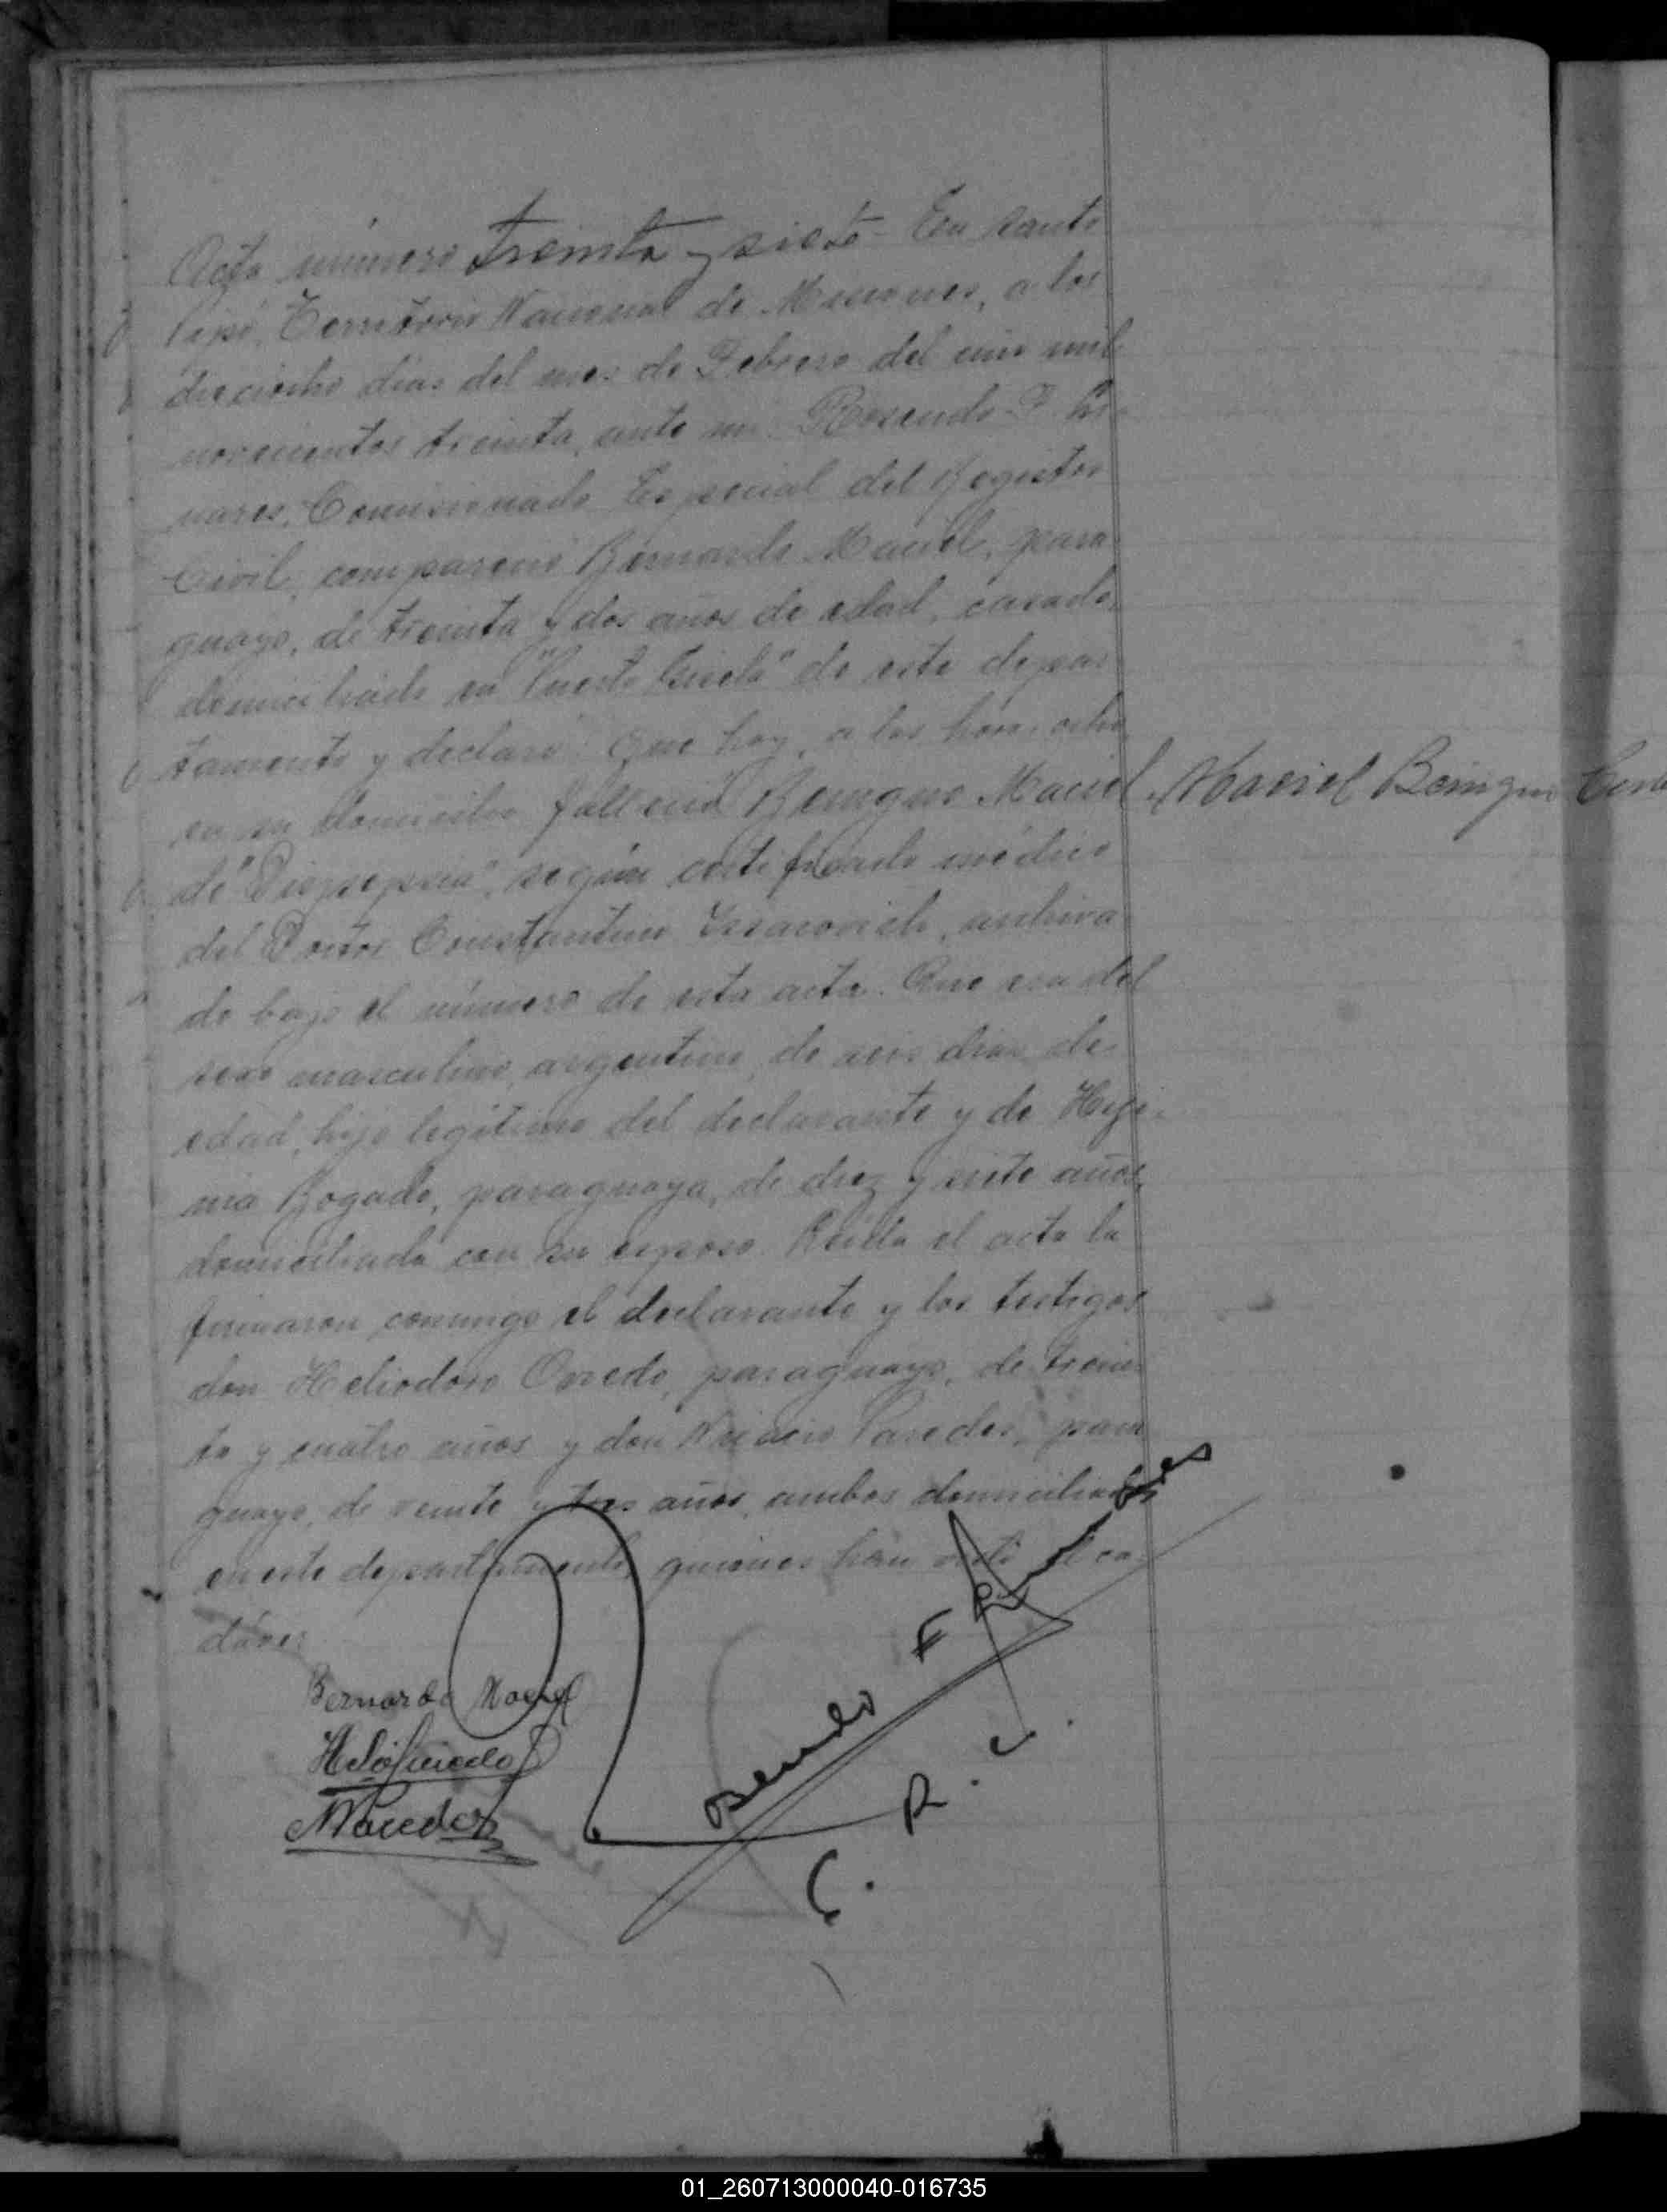 Acta número treinta y siete - En Santo
Pipó, Territorio Nacional de Misiones, a los
dieciocho días del mes de Febrero del año mil
novecientos treinta, ante mi: Rosendo F. Li-
nares, Comisionado Especial del Registro
Civil, compareció Bernardo Maciel, para-
guayo, de treinta y dos años de edad, casado,
domiciliado en "Puerto Gisela" de este depar-
tamento y declaró: Que hoy, a las horas ocho
en su domicilio falleció Benigno Maciel
de "Dispepsia", según certificado médico
del Doctor Constantino archiva-
do bajo el número de esta acta. Que era del
sexo masculino, argentino, de seis días de
edad, hijo legítimo del declarante y de Higi-
nia Bogado, paraguaya, de diez y siete años,
domiciliada con su esposo. Leída el acta la
firmaron conmigo el declarante y los testigos
don Heliodoro Oviedo, paraguayo, de trein-
ta y cuatro años y don Nicacio Paredes, para-
guayo, de veinte y tres años, ambos domiciliados
en este departamento, quienes han visto el ca-
dáver
Maciel Benigno
Bernardo Maciel
Helio Oviedo
NParedes
Rosendo F Linares
C. R. C.
01_260713000040-016735